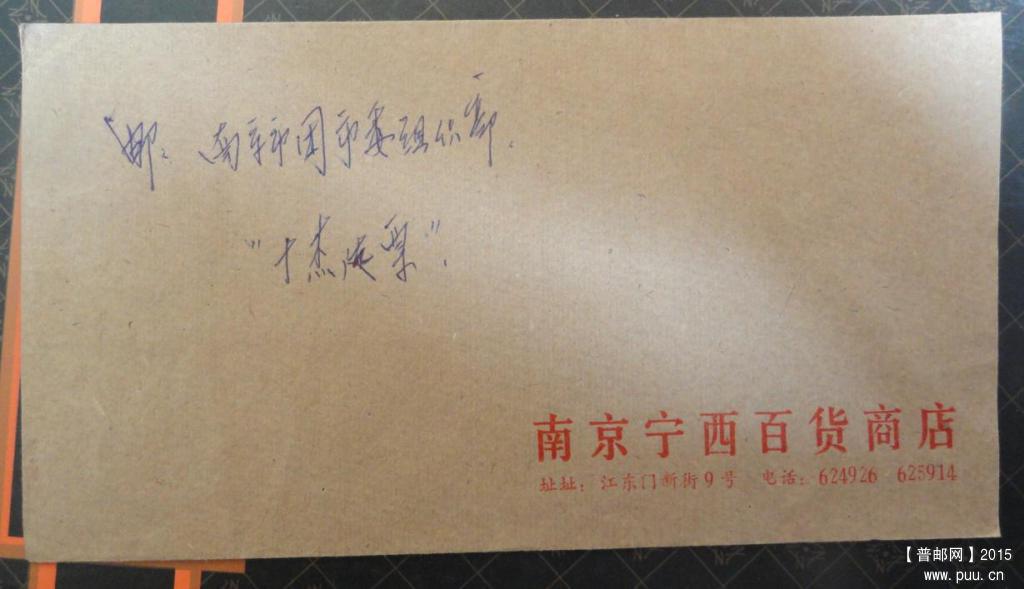 邮：南京市团市委组织部.
"十杰选票".
南京宁西百货商店
址址：江东门新街9号 电话：624926 625914
【普邮网】2015
www.puu.cn